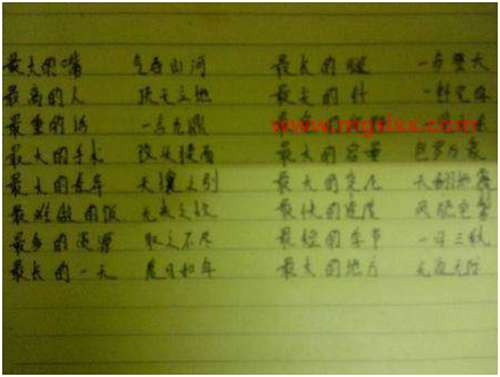 最大的嘴 气吞山河 最长的腿 一步登天
最高的人 顶天立地
最重的话 一言九鼎
最大的手术 改头换面 最大的容量 包罗万象
最大的差异 天壤之别 最大的变化 天翻地覆
最难做的饭 无米之炊 最快的速度 风驰电掣
最多的资源 取之不尽 最短的季节 一日三秋
最长的一天 度日如年 最大的地方 无边无际